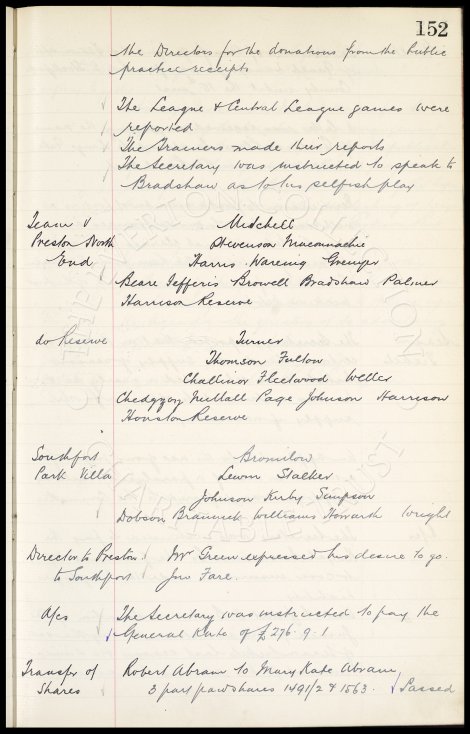 152
the Directors for the donations from the Public
practice receipts
The League & Central League games were
reported
The Trainers made their reports
The Secretary was instructed to speak to
Bradshaw as to his selfish play
Team v Mitchell
Preston North Stevenson Maconnachie
End Harris Wareing Grenyer
Beare Jefferis Browell Bradshaw Palmer
Harrison Reserve
do Reserve Turner
Thomson Fulton
Challinor Fleetwood Weller
Chedgzoy Nuttall Page Johnson Harrison
Houston Reserve
Southport Bromilow
Park Villa Lewin Stalker
Johnson Kirby Simpson
Dobson Brannick Williams Howarth Wright
Director to Preston Mr Green expressed his desire to go.
to Southport Jno Fare.
A/cs The Secretary was instructed to pay the
General Rate of £276.9.1
Transfer of Robert Abram to Mary Kate Abram
Shares 3 part paid shares 1491/2 & 1563. Passed